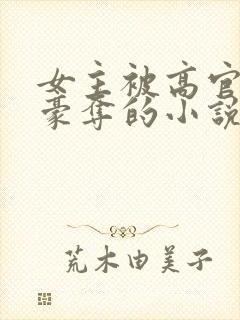 女主被高官
豪奪的小說
荒木由美子